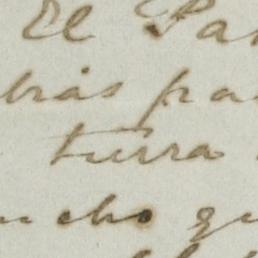 El Pa
brás pa
tierra
ucho qu